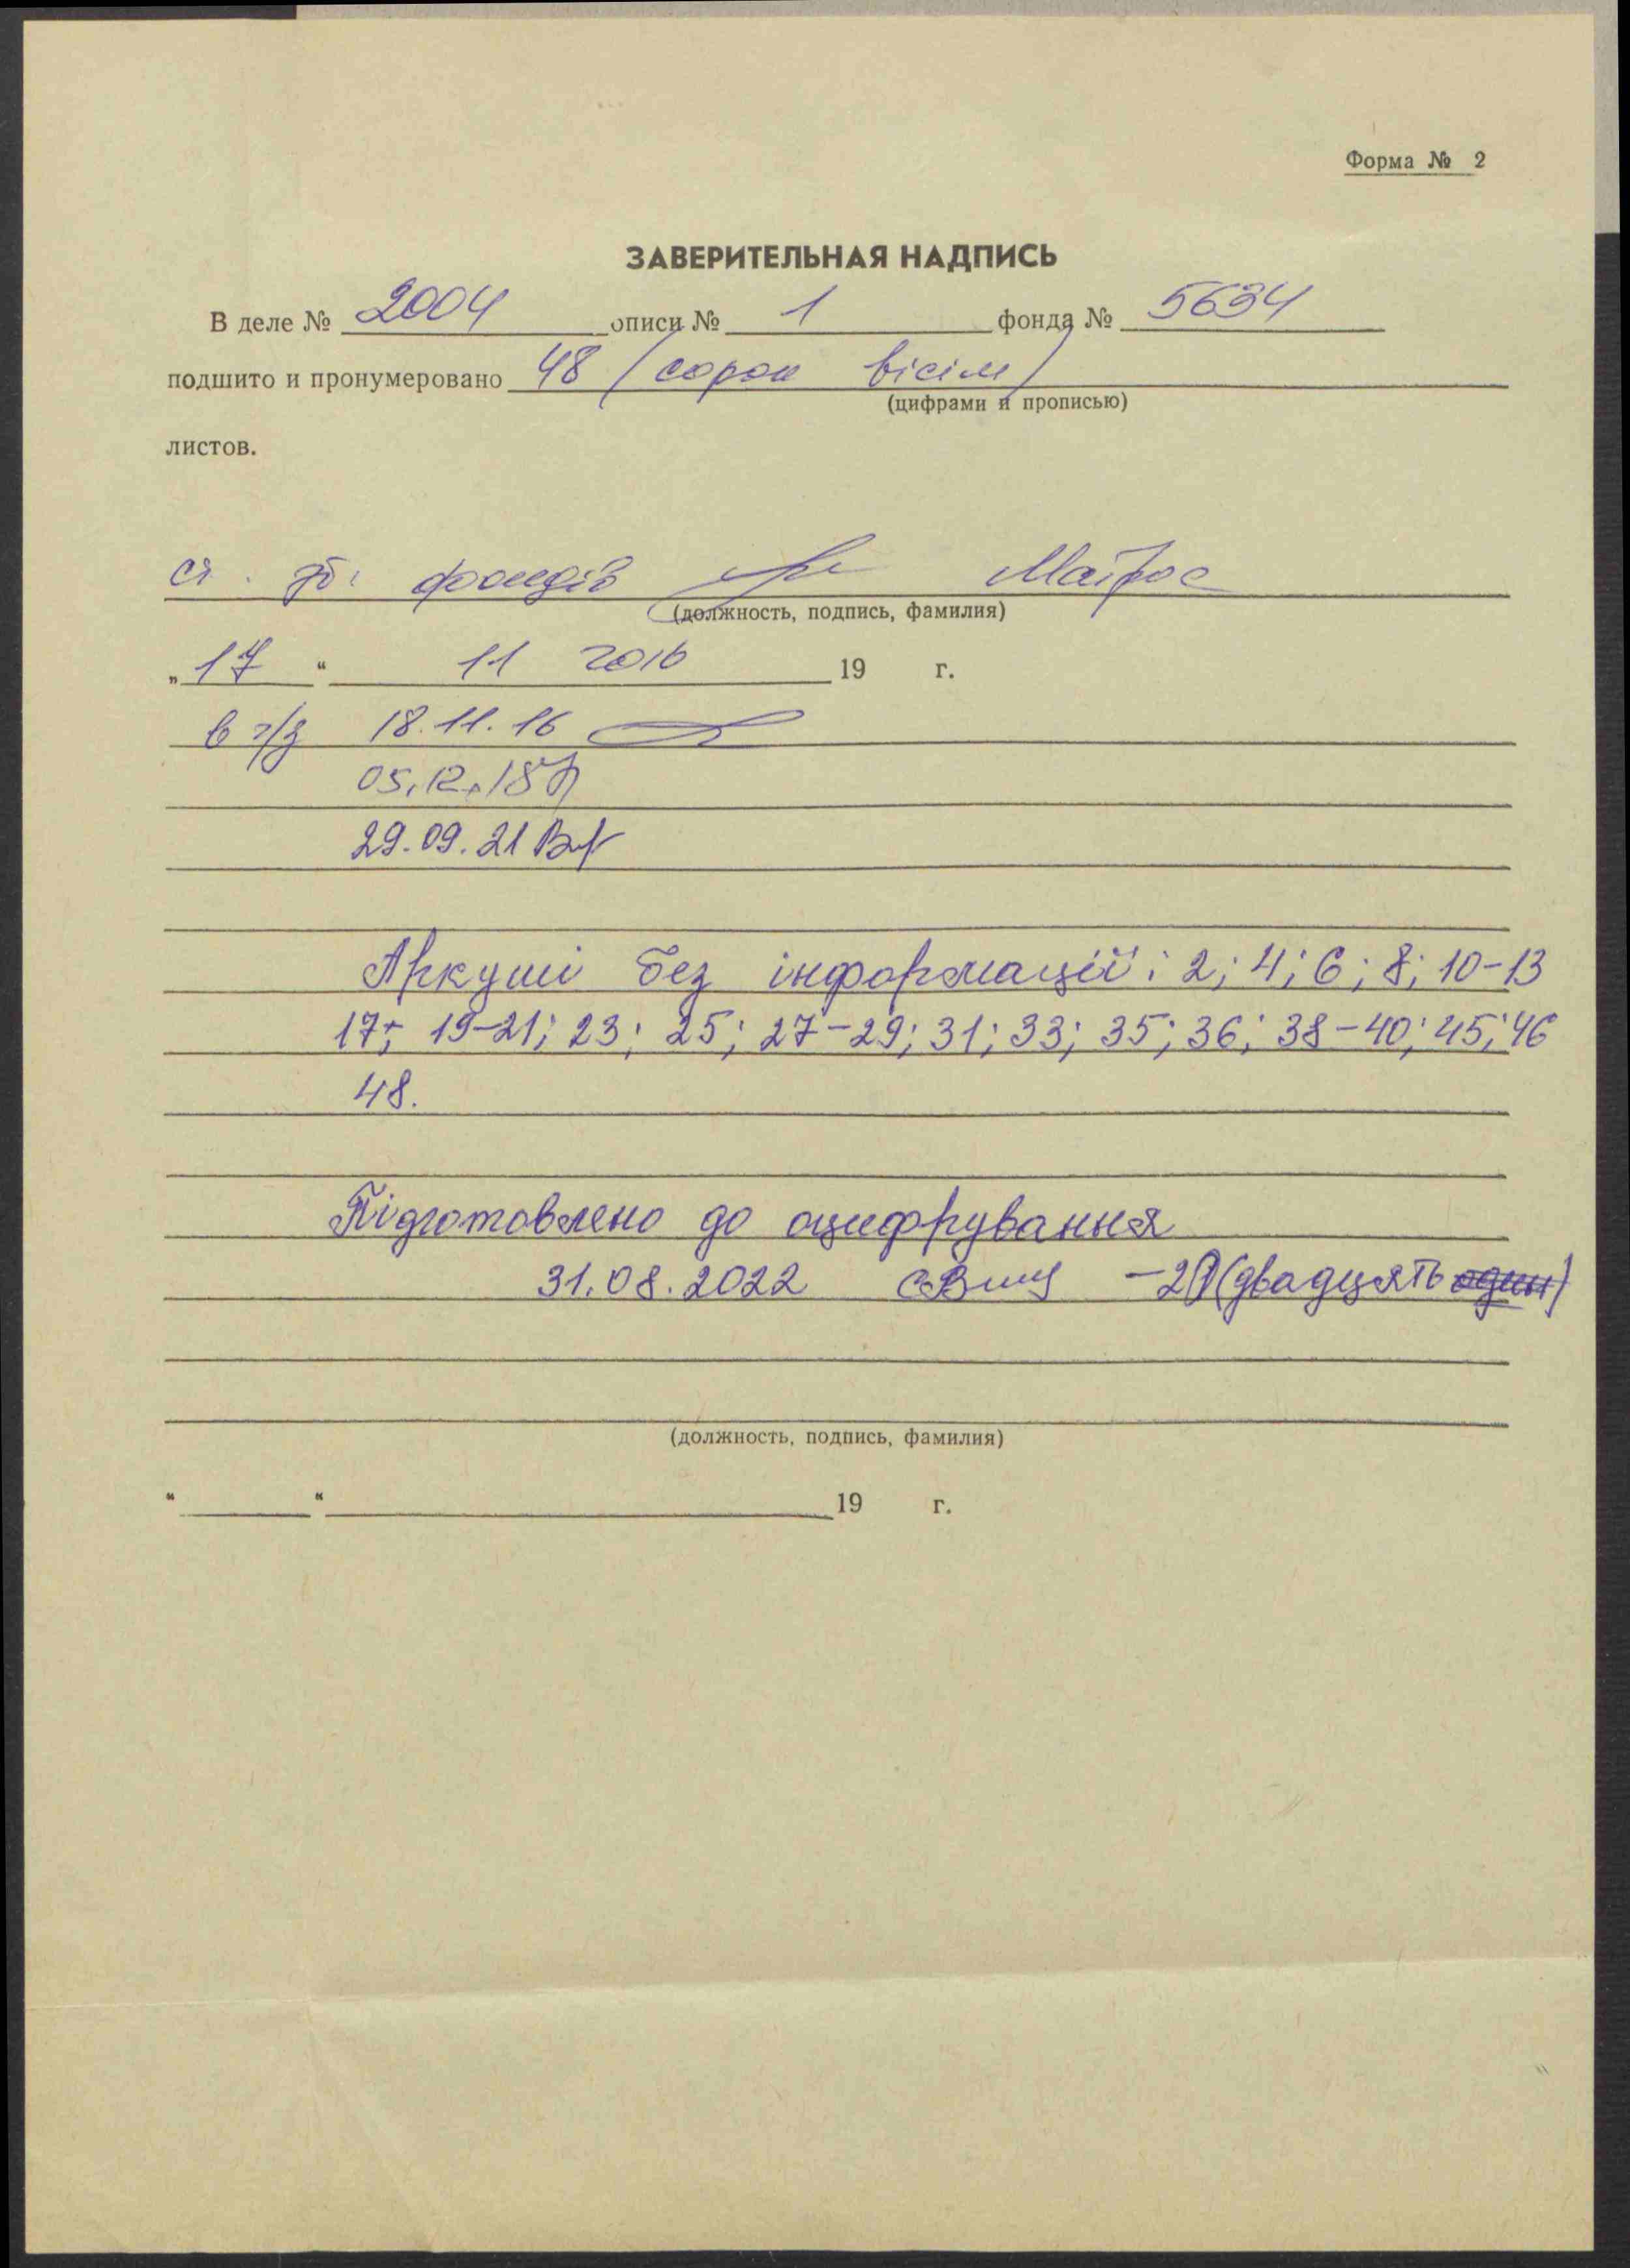 Форма № 2
ЗАВЕРИТЕЛЬНАЯ НАДПИСЬ
В деле № 2004 описи № 1 фонда № 5634
подшито и пронумеровано 48 (сорок вісім)
(цифрами и прописью)
листов.
ст. зб. фондів Матрос
(должность, подпись, фамилия)
„17“ 11 2016 19 г.
в г/з 18.11.16
05.12.18
29.09.21
Аркуші без інформації: 2; 4; 6; 8; 10-13
17; 19-21; 23; 25; 27-29; 31; 33; 35; 36; 38-40; 45; 46
48.
Підготовлено до оцифрування
31.08.2022 (двадцять один)
(должность, подпись, фамилия)
“ “ 19 г.